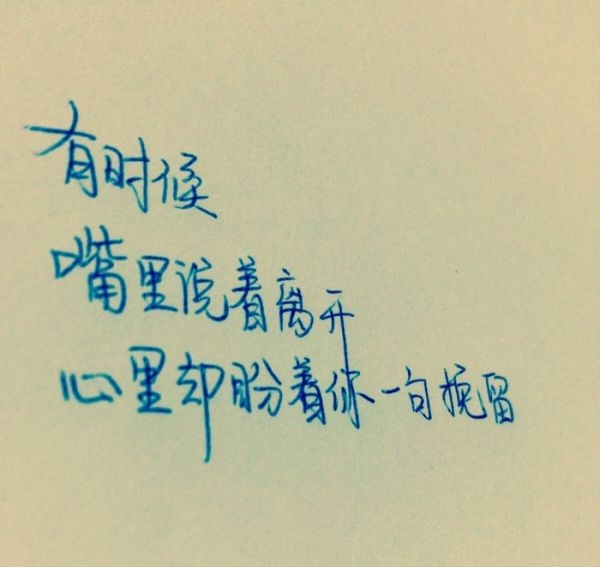 有时候
嘴里说着离开
心里却盼着你一句挽留